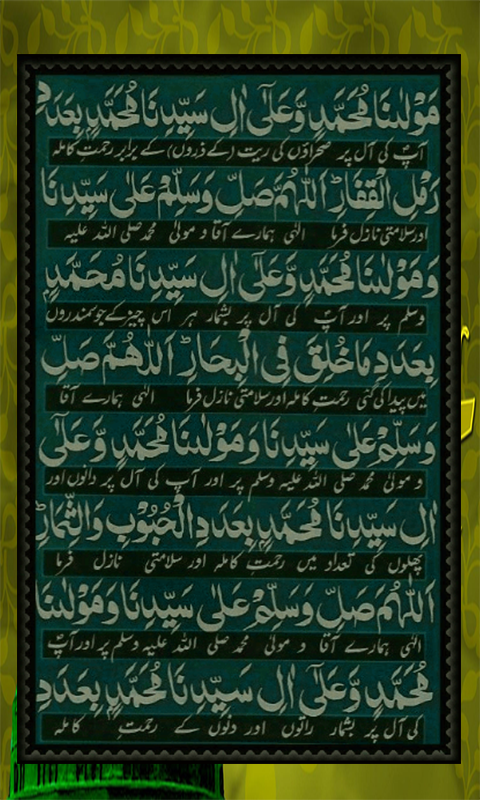 مَوْلٰىنَا مُحَمَّدٍ وَّعَلٰٓى اٰلِ سَيِّدِنَا مُحَمَّدٍۢ بِعَدَدِ
آپؐ کی آل پر صحراؤں کی ریت (کے ذروں) کے برابر رحمتِ کاملہ
رَمْلِ الْقِفَارِ ؕ اَللّٰهُمَّ صَلِّ وَسَلِّمْ عَلٰى سَيِّدِنَا
اور سلامتی نازل فرما الٰہی ہمارے آقا و مولیٰ محمد صلی اللہ علیہ
وَمَوْلٰىنَا مُحَمَّدٍ وَّعَلٰٓى اٰلِ سَيِّدِنَا مُحَمَّدٍۢ
وسلم پر اور آپؐ کی آل پر بشمار ہر اس چیز کے جو سمندروں
بِعَدَدِ مَا خُلِقَ فِى الْبِحَارِ ؕ اَللّٰهُمَّ صَلِّ
میں پیدا کی گئی رحمتِ کاملہ اور سلامتی نازل فرما الٰہی ہمارے آقا
وَسَلِّمْ عَلٰى سَيِّدِنَا وَمَوْلٰىنَا مُحَمَّدٍ وَّعَلٰٓى
و مولیٰ محمد صلی اللہ علیہ وسلم پر اور آپ کی آل پر دانوں اور
اٰلِ سَيِّدِنَا مُحَمَّدٍۢ بِعَدَدِ الْحُبُوْبِ وَالثِّمَارِ ؕ
پھلوں کی تعداد میں رحمتِ کاملہ اور سلامتی نازل فرما
اَللّٰهُمَّ صَلِّ وَسَلِّمْ عَلٰى سَيِّدِنَا وَمَوْلٰىنَا
الٰہی ہمارے آقا و مولیٰ محمد صلی اللہ علیہ وسلم پر اور آپؐ
مُحَمَّدٍ وَّعَلٰٓى اٰلِ سَيِّدِنَا مُحَمَّدٍۢ بِعَدَدِ
کی آل پر بشمار راتوں اور دنوں کے رحمتِ کاملہ